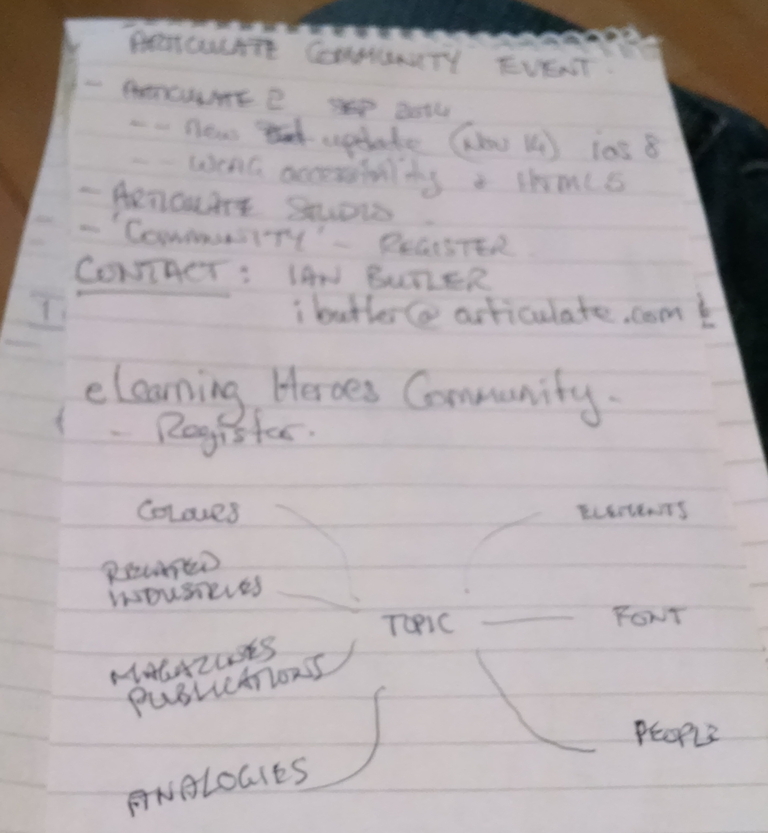 ARTICULATE COMMUNITY EVENT.
- ARTICULATE 2 SEP 2014
-- New update (Nov 14) ios 8
-- WCAG accessibility & HTML5
- ARTICULATE STUDIO
- 'COMMUNITY' - REGISTER
CONTACT: IAN BUTLER
ibutler@articulate.com
eLearning Heroes Community.
- Register.
COLOURS
ELEMENTS
RELATED
INDUSTRIES
TOPIC
FONT
MAGAZINES
PUBLICATIONS
PEOPLE
ANALOGIES